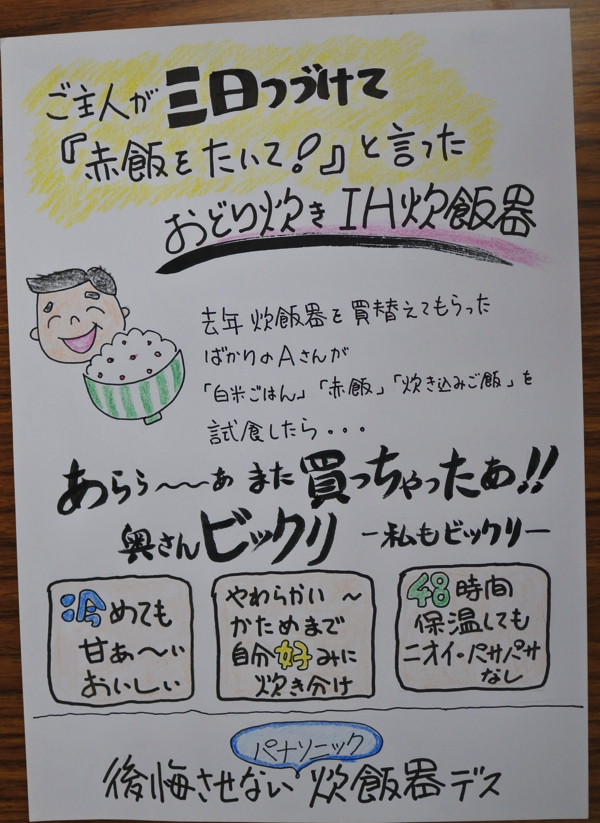 ご主人が三日つづけて
『赤飯をたいて!』と言った
おどり炊きIH炊飯器
去年炊飯器を買替えてもらった
ばかりのAさんが
「白米ごはん」「赤飯」「炊き込みご飯」を
試食したら・・・
あらぅ〜〜ぁ また買っちゃったぁ!!
奥さんビックリ ー私もビックリー
冷めても
甘ぁ〜ぃ
おいしい
やわらかい〜
かためまで
自分好みに
炊き分け
48時間
保温しても
ニオイ・パサパサ
なし
パナソニック
後悔させない炊飯器デス